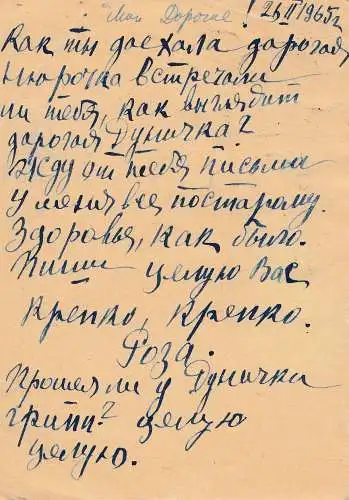 Мои Дорогие! 25/II 1965г.
Как ты доехала дорогая
Нюрочка встречали
ли тебя, как выглядит
дорогая Дуничка?
Жду от тебя письма
у меня все постарому.
Здоровье, как было.
Пиши целую Вас
крепко, крепко.
Роза.
Прошел ли у Дунички
грипп? целую
целую.